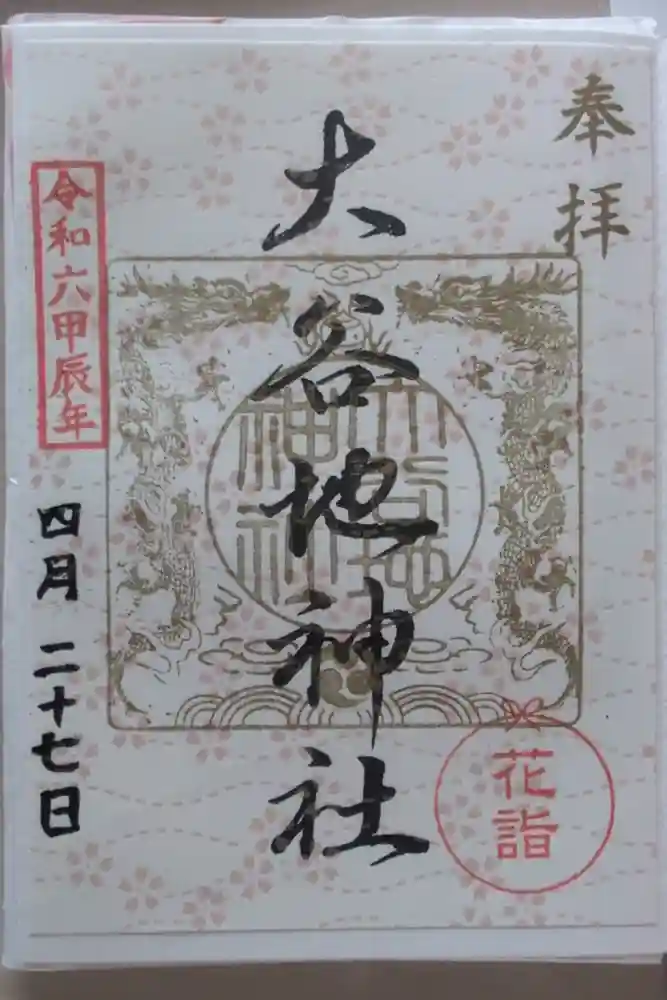 奉拝
大谷地神社
花詣
大谷地
神社
令和六甲辰年
四月二十七日